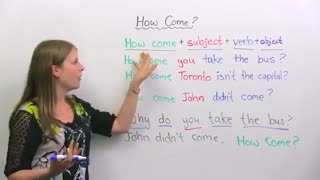 How Come?
How come + subject + verb + object
How come you take the bus?
How come Toronto isn't the capital?
How come John didn't come?
Why do you take the bus?
John didn't come. How Come?